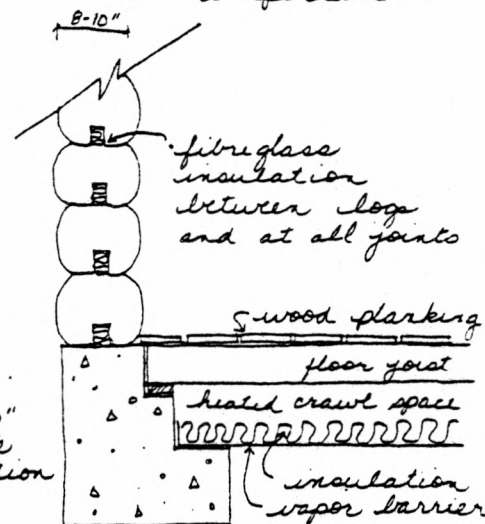 8-10"
fibreglass
insulation
between logs
and at all joints
wood planking
floor joist
heated crawl space
insulation
vapor barrier